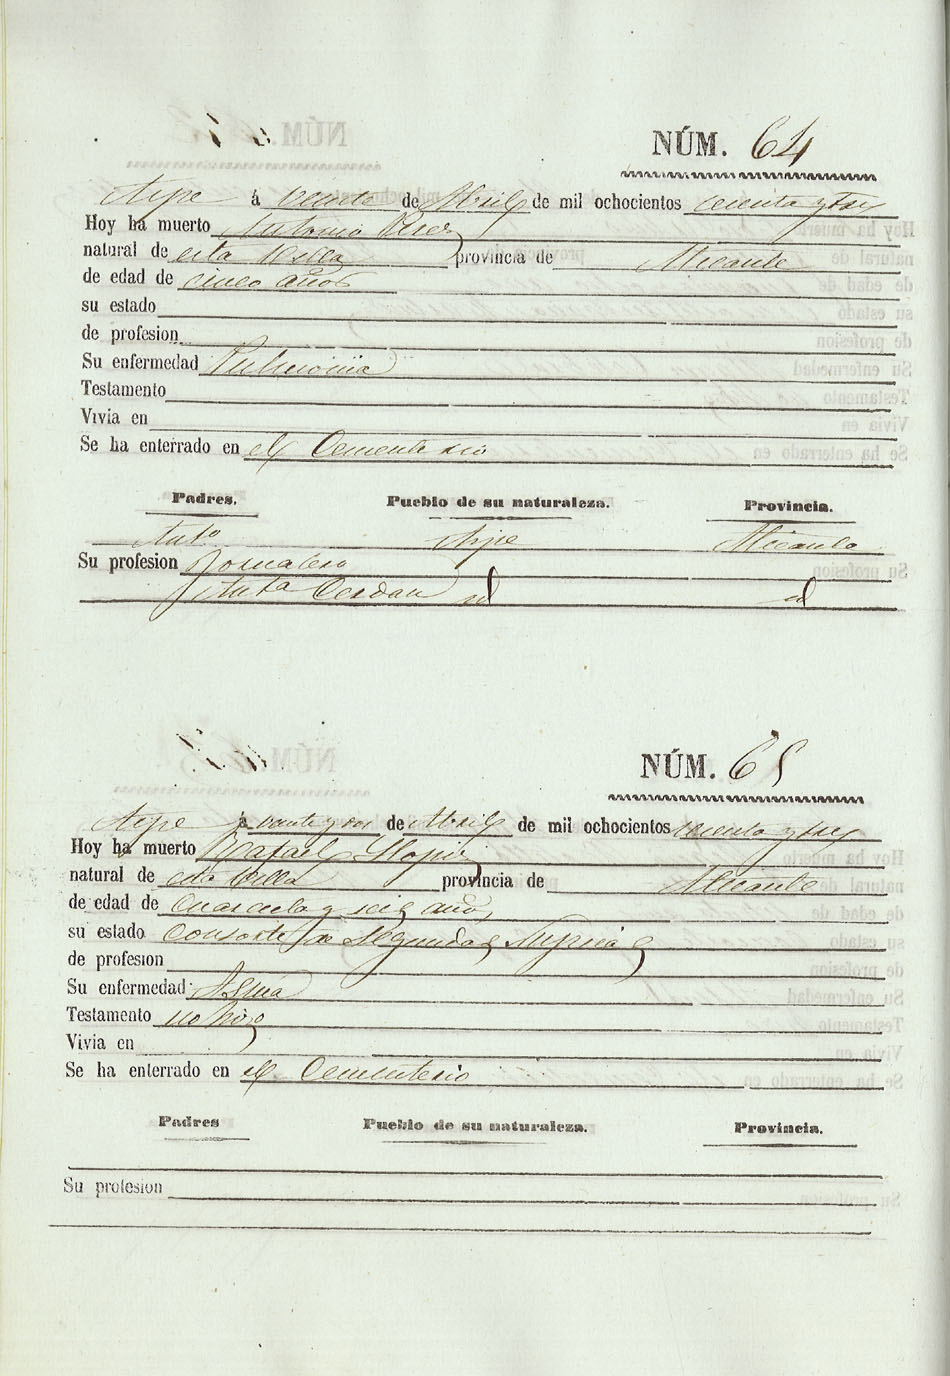 NÚM. 64
Aspe á veinte de Abril de mil ochocientos sesenta y tres
Hoy ha muerto Antonio Perez
natural de esta Villa provincia de Alicante
de edad de cinco años
su estado
de profesion
Su enfermedad Pulmonia
Testamento
Vivia en
Se ha enterrado en el Cementerio
Padres. Pueblo de su naturaleza. Provincia.
Anto Aspe Alicante
Su profesion Jornalero
Anta Cerdan id id
NÚM. 65
Aspe á veinte y dos de Abril de mil ochocientos sesenta y tres
Hoy ha muerto Rafael
natural de esta Villa provincia de Alicante
de edad de Cuarenta y seis años
su estado Consorte de Segunda
de profesion
Su enfermedad Asma
Testamento no hizo
Vivia en
Se ha enterrado en el Cementerio
Padres Pueblo de su naturaleza. Provincia.
Su profesion